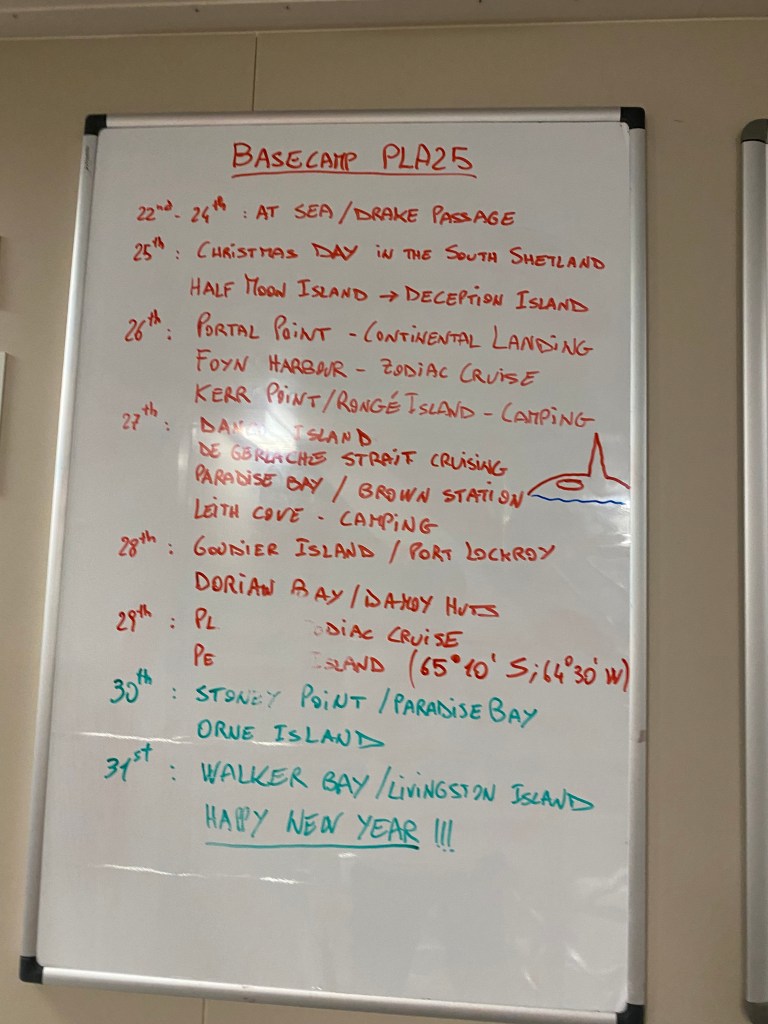 BASECAMP PLA25
22nd - 24th : AT SEA / DRAKE PASSAGE
25th : CHRISTMAS DAY IN THE SOUTH SHETLAND
HALF MOON ISLAND → DECEPTION ISLAND
26th : PORTAL POINT - CONTINENTAL LANDING
FOYN HARBOUR - ZODIAC CRUISE
KERR POINT / RONGÉ ISLAND - CAMPING
27th : ISLAND
DE GERLACHE STRAIT CRUISING
PARADISE BAY / BROWN STATION
LEITH COVE - CAMPING
28th : GOUDIER ISLAND / PORT LOCKROY
DORIAN BAY / DAMOY HUTS
29th : PL ODIAC CRUISE
PE ISLAND (65°10' S; 64°30' W)
30th : STONEY POINT / PARADISE BAY
ORNE ISLAND
31st : WALKER BAY / LIVINGSTON ISLAND
HAPPY NEW YEAR !!!